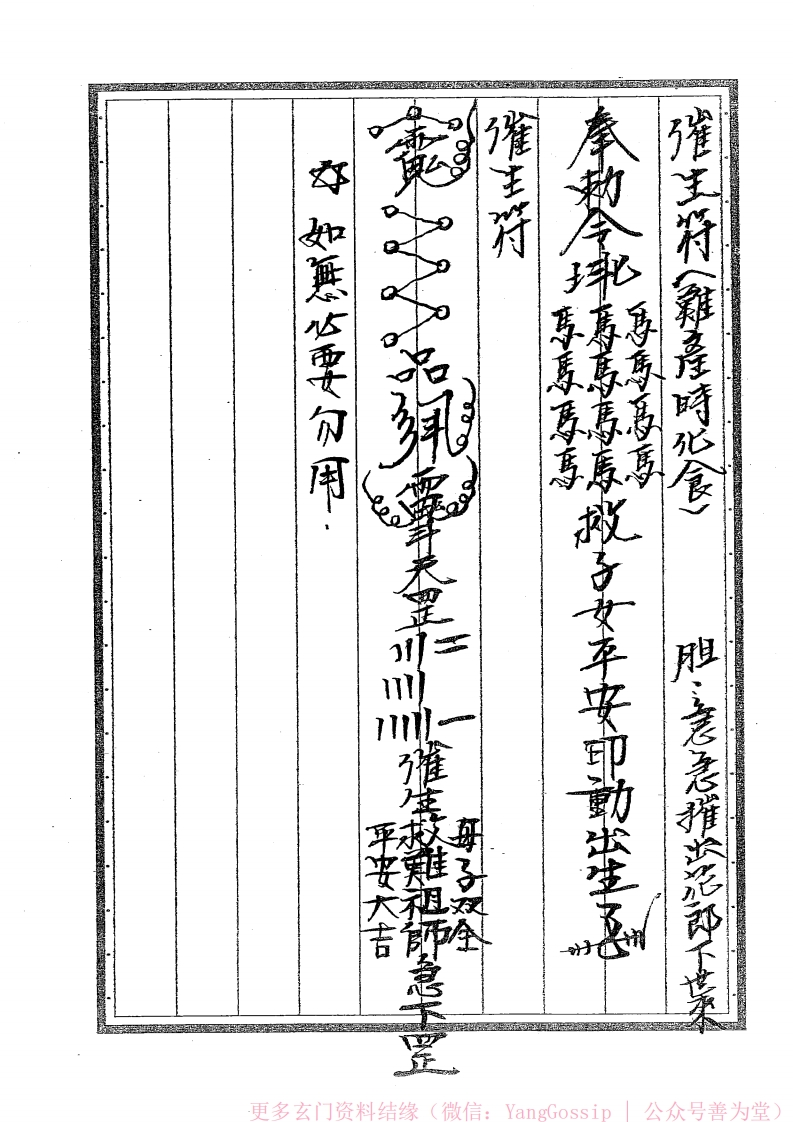 催生符（難產時化食） 胆：意急急催出花郎下來
奉勅令
馬馬馬馬
馬馬馬馬
馬馬馬馬
救子女平安即動出生
催生符
品
天罡
催生救難祖師急下罡
母子双全
平安大吉
如無必要勿用.
更多玄门资料结缘（微信：YangGossip | 公众号善为堂）